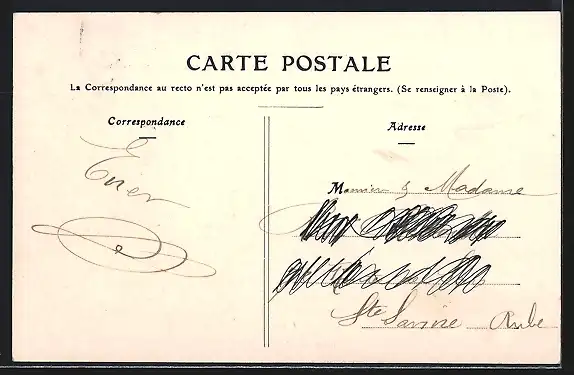 CARTE POSTALE
La Correspondance au recto n'est pas acceptée par tous les pays étrangers. (Se renseigner à la Poste).
Correspondance
Adresse
Monsieur & Madame
Ste Savine Aube